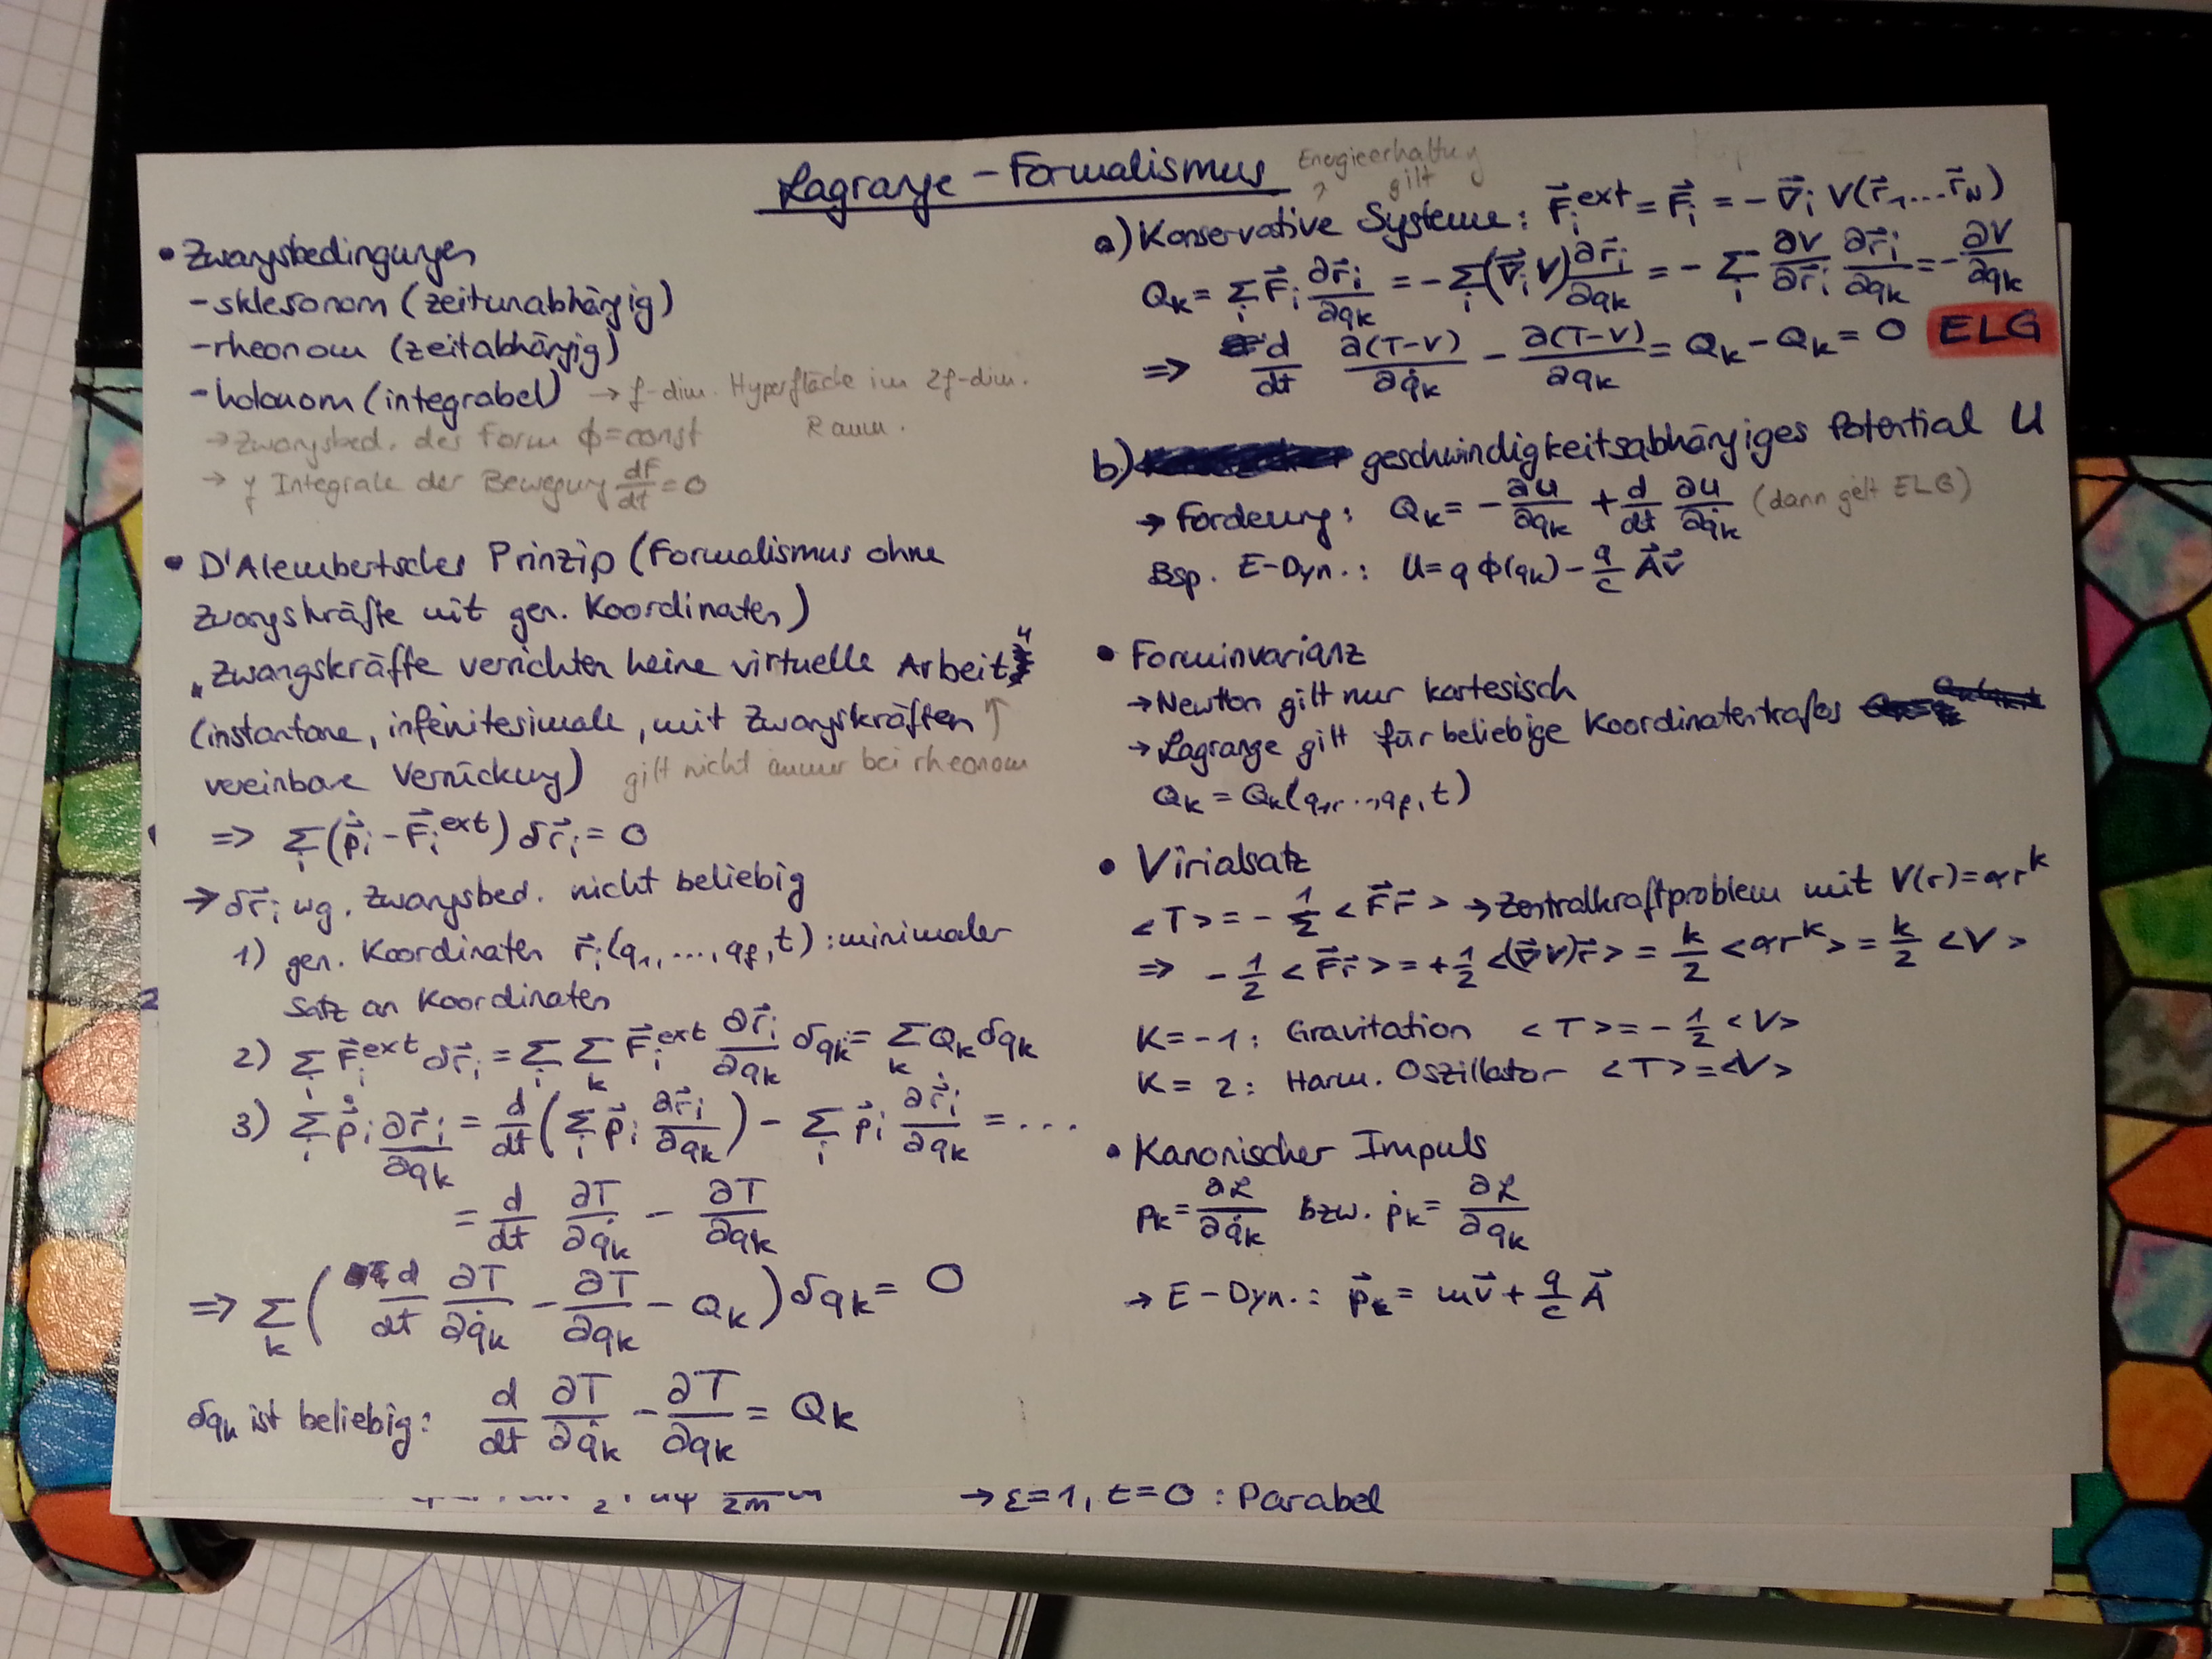 Lagrange-Formalismus
• Zwangsbedingungen
- sklesonom (zeitunabhängig)
- rheonom (zeitabhängig)
- holonom (integrabel) → f-dim. Hyperfläche im 2f-dim. Raum.
→ Zwangsbed. der Form ϕ=const
→ f Integrale der Bewegung dF/dt = 0
• D'Alembertsches Prinzip (Formalismus ohne
Zwangskräfte mit gen. Koordinaten)
"Zwangskräfte verrichten keine virtuelle Arbeit"
(instantane, infinitesimale, mit Zwangskräften ↑
vereinbare Verrückung) gilt nicht immer bei rheonom
⇒ Σ_i (ṗ⃗_i − F⃗_i^ext) δr⃗_i = 0
→ δr⃗_i wg. Zwangsbed. nicht beliebig
1) gen. Koordinaten r⃗_i(q_1, ..., q_f, t): minimaler
Satz an Koordinaten
2) Σ_i F⃗_i^ext δr⃗_i = Σ_i Σ_k F⃗_i^ext ∂r⃗_i/∂q_k δq_k = Σ_k Q_k δq_k
3) Σ_i ṗ⃗_i ∂r⃗_i/∂q_k = d/dt (Σ_i p⃗_i ∂r⃗_i/∂q_k) − Σ_i p⃗_i ∂ṙ⃗_i/∂q_k = ....
= d/dt ∂T/∂q̇_k − ∂T/∂q_k
⇒ Σ_k (d/dt ∂T/∂q̇_k − ∂T/∂q_k − Q_k) δq_k = 0
δq_k ist beliebig: d/dt ∂T/∂q̇_k − ∂T/∂q_k = Q_k
Energieerhaltung
gilt
a) Konservative Systeme: F⃗_i^ext = F⃗_i = −∇⃗_i V(r⃗_1 .... r⃗_N)
Q_k = Σ_i F⃗_i ∂r⃗_i/∂q_k = −Σ_i (∇⃗_i V) ∂r⃗_i/∂q_k = −Σ_i ∂V/∂r⃗_i ∂r⃗_i/∂q_k = −∂V/∂q_k
⇒ d/dt ∂(T−V)/∂q̇_k − ∂(T−V)/∂q_k = Q_k − Q_k = 0 ELG
b) geschwindigkeitsabhängiges Potential U
→ Forderung: Q_k = −∂U/∂q_k + d/dt ∂U/∂q̇_k (dann gilt ELG)
Bsp. E-Dyn.: U = qϕ(q_k) − q/c A⃗v⃗
• Forminvarianz
→ Newton gilt nur kartesisch
→ Lagrange gilt für beliebige Koordinatentrafos
Q_k = Q_k(q_1, ..., q_f, t)
• Virialsatz
<T> = −1/2 <F⃗r⃗> → Zentralkraftproblem mit V(r) = αr^k
⇒ −1/2 <F⃗r⃗> = +1/2 <(∇⃗V)r⃗> = k/2 <αr^k> = k/2 <V>
K = −1: Gravitation <T> = −1/2 <V>
K = 2: Harm. Oszillator <T> = <V>
• Kanonischer Impuls
p_k = ∂L/∂q̇_k bzw. ṗ_k = ∂L/∂q_k
→ E-Dyn.: p⃗_k = mv⃗ + q/c A⃗
→ ε=1, t=0 : Parabel